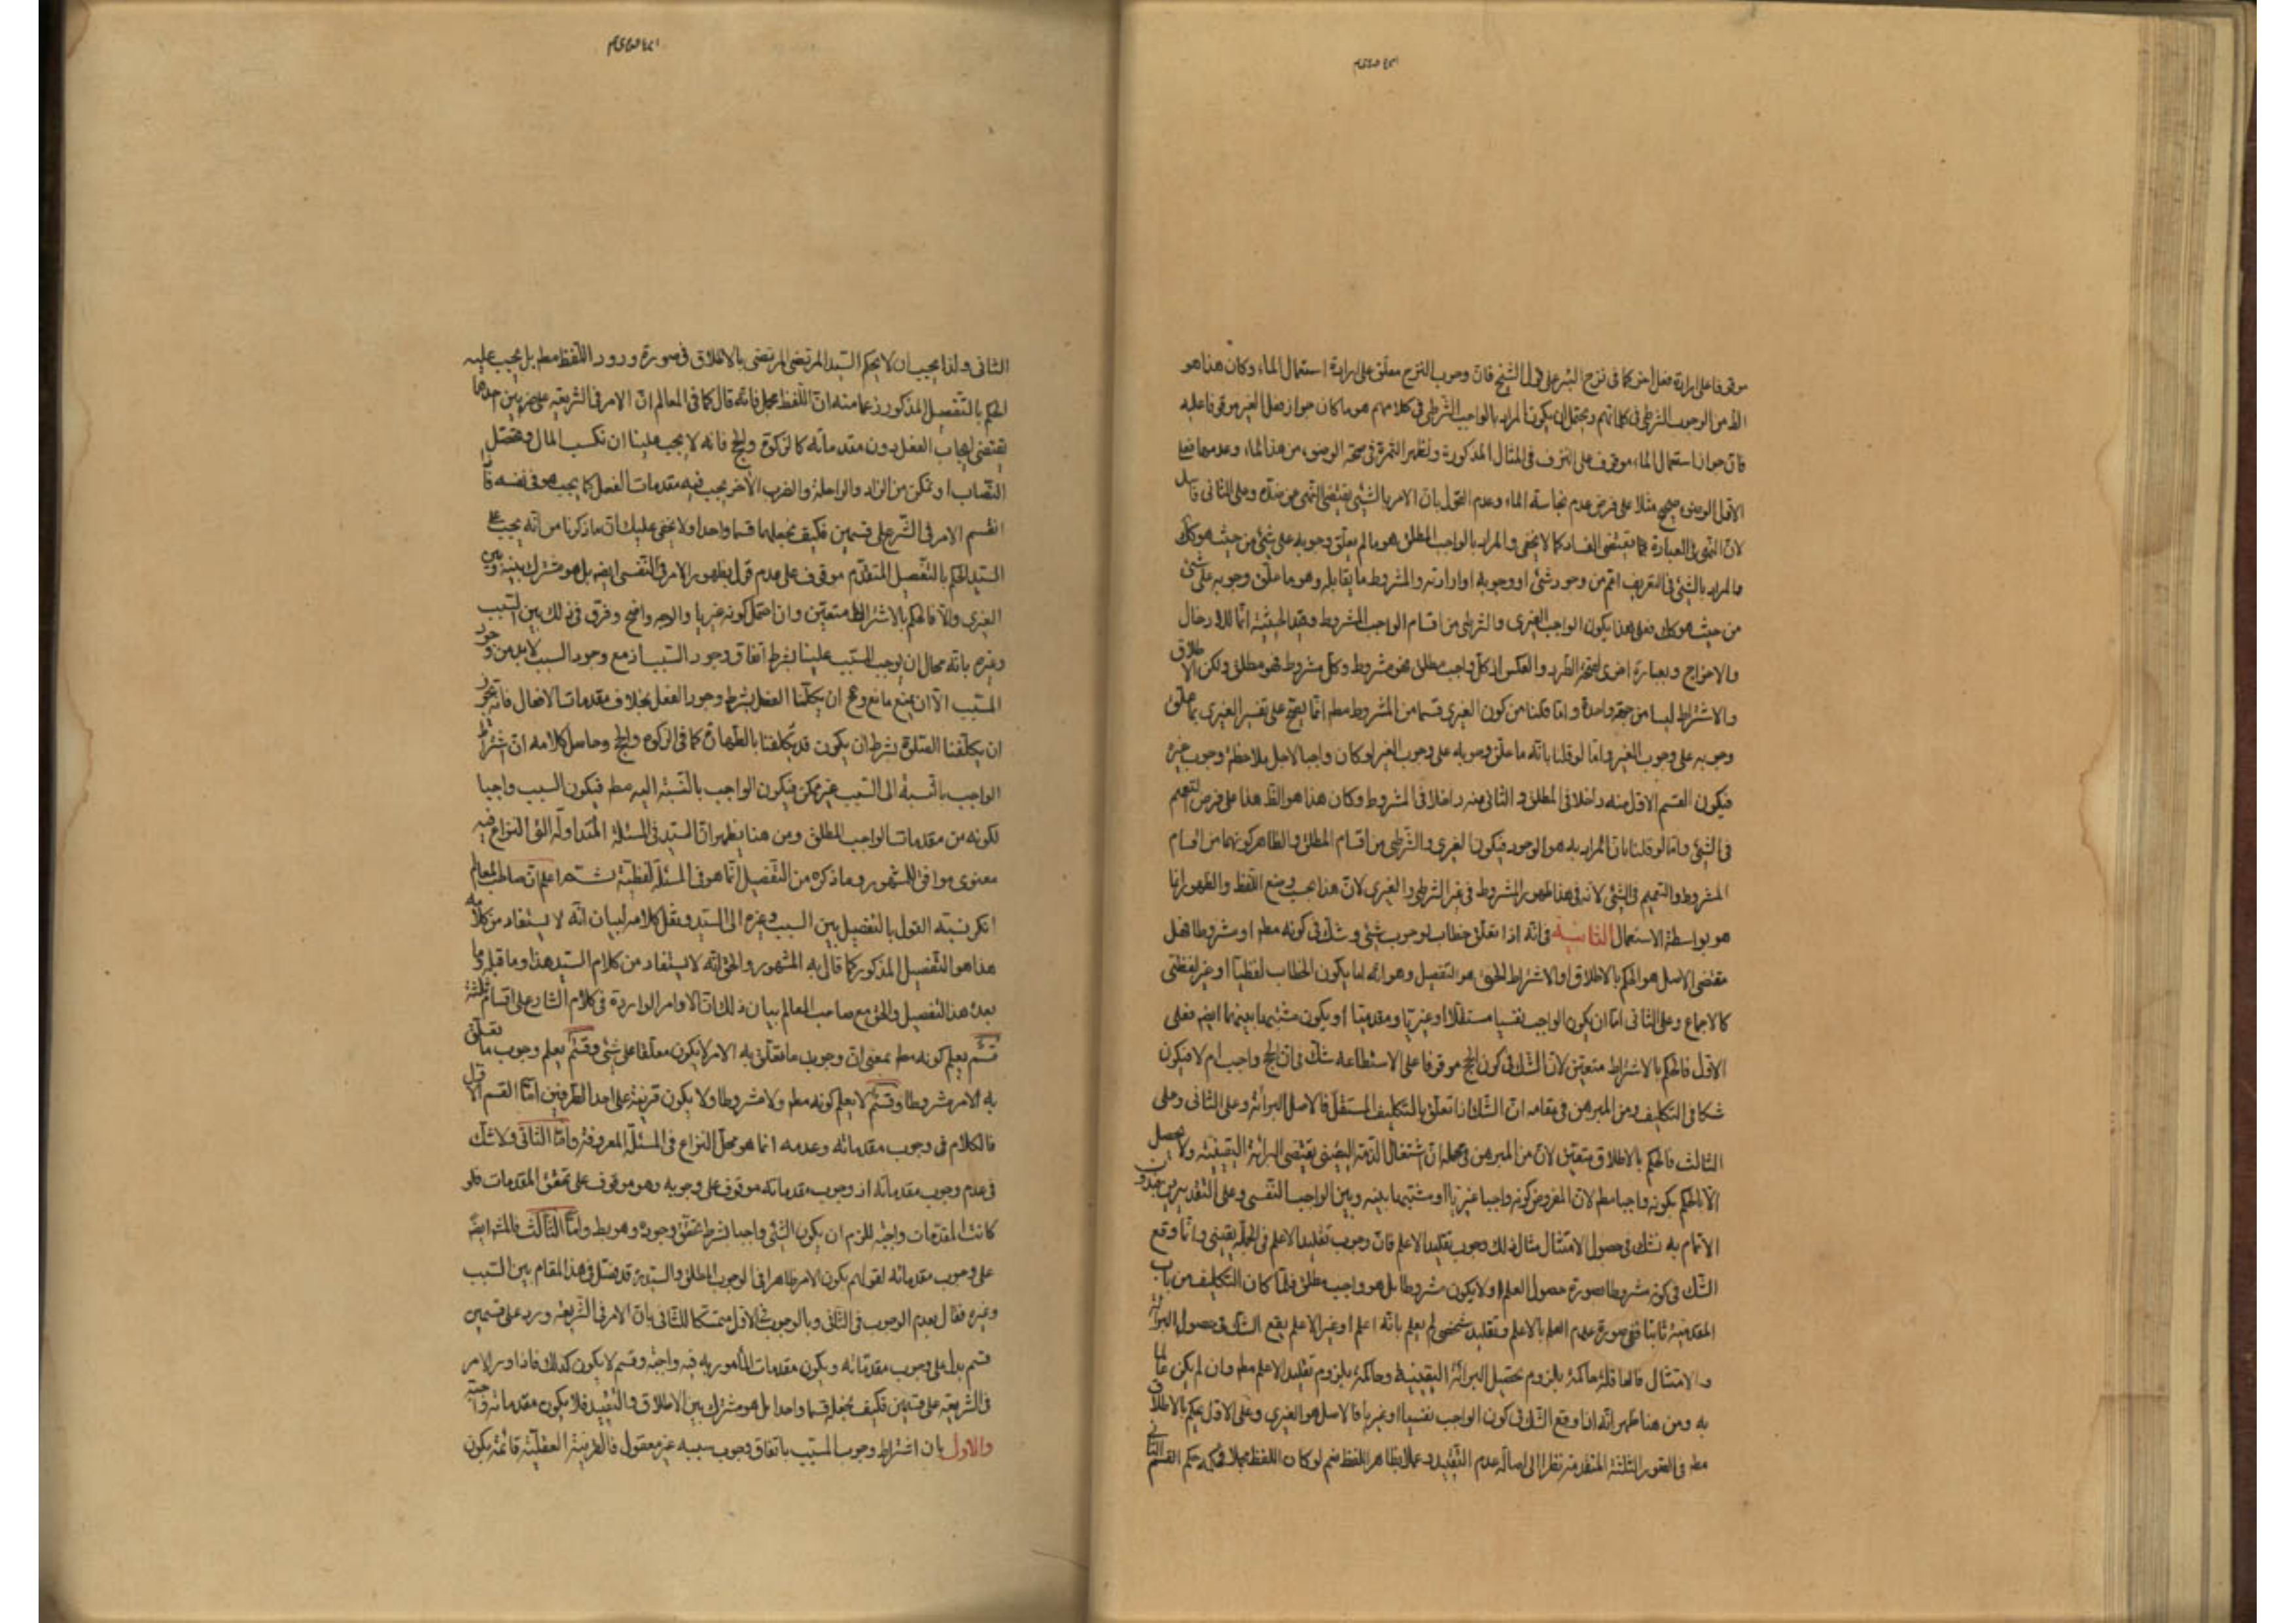 موقوفا على ارادة فعل اخر كما في نزح البئر على قول الشيخ فان وجوب النزح معلق على ارادة استعمال الماء وكان هذا هو
الظ من الوجوب الشرطي في كلماتهم ويحتمل ان يكون المراد بالواجب الشرطي في كلامهم هو ما كان جواز فعل الغير موقوفا عليه
فان جواز استعمال الماء موقوف على النزف في المثال المذكور وتظهر الثمرة في صحة الوضوء من هذا الماء وعدمها فعلى
الاول الوضوء صحيح مثلا على فرض عدم نجاسة الماء وعدم القول بان الامر بالشيئ يقتضي النهي عن ضده وعلى الثاني فاسد
لان النهي في العبادة مما يقتضي الفساد كما لا يخفى والمراد بالواجب المطلق هو ما لم يعلق وجوبه على شيئ من حيث هو كك
والمراد بالشيئ في التعريف اعم من وجود شيئ او وجوبه او ارادته والمشروط ما يقابله وهو ما علق وجوبه على شيئ
من حيث هو كك فعلى هذا يكون الواجب الغيري والشرطي من اقسام الواجب المشروط وقيد الحيثية انما للادخال
والاخراج وبعبارة اخرى لصحة الطرد والعكس اذ كل واجب مطلق فهو مشروط وكل مشروط فهو مطلق ولكن الاطلاق
والاشتراط ليسا من جهة واحدة وما قلنا من كون الغيري قسما من المشروط مطم انما يصح على تفسير الغيري بما علق
وجوبه على وجوب الغير واما لو قلنا بانه ما علق وجوبه على وجوب الغير او كان واجبا لاجل ملاحظة وجوب غيره
فيكون القسم الاول منه داخلا في المطلق والثاني منه داخلا في المشروط وكان هذا هو الظ هذا على فرض التعميم
في الشيئ واما لو قلنا بان المراد به هو الوجود فيكون الغيري والشرطي من اقسام المطلق والظاهر كونهما من اقسام
المشروط والتعميم في الشيئ لانه في هذا ظهور المشروط في غير الشرطي والغيري لان هذا بحسب وضع اللفظ والظهور انما
هو بواسطة الاستعمال الثانية في انه اذا تعلق خطاب بوجوب شيئ وشك في كونه مطم او مشروطا فهل
مقتضى الاصل هو الحكم بالاطلاق او الاشتراط الحق هو التفصيل وهو انه اما يكون الخطاب لفظيا او غير لفظي
كالاجماع وعلى الثاني اما ان يكون الواجب نفسيا مستقلا او غيريا ومقدميا او يكون مشتبها بينهما ايضم فعلى
الاول فالحكم بالاشتراط متعين لان الشك في كون الحج موقوفا على الاستطاعه شك في ان الحج واجب ام لا فيكون
شكا في التكليف ومن المبرهن في مقامه ان الشك اذا تعلق بالتكليف المستقل فالاصل البرائة وعلى الثاني وعلى
الثالث فالحكم بالاطلاق متعين لان من المبرهن في محله ان اشتغال الذمة اليقيني يقتضي البرائة اليقينية ولا يحصل
الا بالحكم بكونه واجبا مطم لان المفروض كونه واجبا غيريا او مشتبها بينه وبين الواجب النفسي وعلى التقديرين فبدون
الاتمام به نشك في حصول الامتثال مثال ذلك وجوب تقليد الاعلم فان وجوب تقليد الاعلم في الجملة يقيني وانما وقع
الشك في كونه مشروطا بصورة حصول العلم او لا يكون مشروطا بل هو واجب مطلق فلما كان التكليف من باب
المقدمية ثابتا ففي صورة عدم العلم بالاعلم وتقليد شخص لم يعلم بانه اعلم او غير الاعلم يقع الشك في حصول البرائة
والامتثال فالعاقلة حاكمة بلزوم تحصيل البرائة اليقينية وحاكمة بلزوم تقليد الاعلم مطم وان لم يكن عالما
به ومن هنا ظهر انه اذا وقع الشك في كون الواجب نفسيا او غيريا فالاصل هو الغيري وعلى الاول يحكم بالاطلاق
مطم في الصور الثلثة المتقدمة نظرا الى اصالة عدم التقييد وعملا بظاهر اللفظ نعم لو كان اللفظ مجملا فحكمه حكم القسم الثاني
الثاني ولذا يجب ان لا يحكم السيد المرتضى المرتضى بالاطلاق في صورة ورود اللفظ مطم بل يجب عليه
الحكم بالتفصيل المذكور زعما منه ان اللفظ مجمل فانه قال كما في المعالم ان الامر في الشريعة على ضربين احدهما
يقتضي ايجاب الفعل دون مقدماته كالزكوة والحج فانه لا يجب علينا ان نكسب المال ونحصل
النصاب او نتمكن من الزاد والراحلة والضرب الآخر يجب فيه مقدمات الفعل كما يجب هو في نفسه فاذا
انقسم الامر في الشرع على قسمين فكيف نجعلهما قسما واحدا ولا يخفى عليك ان ما ذكرنا من انه يجب على
السيد الحكم بالتفصيل المتقدم موقوف على عدم قوله بظهور الامر في النفسي ايضم بل هو مشترك بينه وبين
الغيري والا فالحكم بالاشتراط متعين وان احتمل كونه غيريا والوجه واضح وفرق في ذلك بين السبب
وغيره بانه محال ان يوجب المسبب علينا بشرط اتفاق وجود السبب اذ مع وجود السبب لا بد من وجود
المسبب الا ان يمنع مانع ومح ان يكلفنا الفعل بشرط وجود الفعل بخلاف مقدمات الافعال فانه يجوز
ان يكلفنا الصلوة بشرط ان يكون قد تكلفنا بالطهارة كما في الزكوة والحج وحاصل كلامه ان اشتراط
الواجب بالنسبة الى السبب غير ممكن فيكون الواجب بالنسبة اليه مطم فيكون السبب واجبا
لكونه من مقدمات الواجب المطلق ومن هنا يظهر ان السيد في المسئلة المتداولة التي النزاع فيه
معنوي موافق للمشهور وما ذكره من التفصيل انما هو في المسئلة لفظية اعلم ان صاحب المعالم
انكر نسبة القول بالتفصيل بين السبب وغيره الى السيد ونقل كلامه لبيان انه لا يستفاد من كلامه
هذا هو التفصيل المذكور كما قال به المشهور والحق انه لا يستفاد من كلام السيد هذا وما قبله وما
بعده هذا التفصيل والحق مع صاحب المعالم بيان ذلك ان الاوامر الواردة في كلام الشارع على اقسام ثلثة
قسم يعلم كونه مطم بمعنى ان وجوب ما تعلق به الامر لا يكون معلقا على شيئ وقسم يعلم وجوب ما تعلق
به الامر مشروطا وقسم لا يعلم كونه مطم ولا مشروطا ولا يكون قرينة على احد الطرفين اما القسم الاول
فالكلام في وجوب مقدماته وعدمه انما هو محل النزاع في المسئلة المعروفة واما الثاني فلا شك
في عدم وجوب مقدماته اذ وجوب مقدماته موقوف على وجوبه وهو موقوف على تحقق المقدمات فلو
كانت المقدمات واجبة للزم ان يكون الشيئ واجبا بشرط تحقق وجوده وهو بط واما الثالث فالمشهور ايضم
على وجوب مقدماته لقولهم بكون الامر ظاهرا في الوجوب المطلق والسيد ره قد فصل في هذا المقام بين السبب
وغيره فقال بعدم الوجوب في الثاني وبالوجوب في الاول متمسكا للثاني بان الامر في الشريعة ورد على قسمين
قسم يدل على وجوب مقدماته ويكون مقدمات المأمور به فيه واجبة وقسم لا يكون كذلك فاذا ورد الامر
في الشريعة على قسمين فكيف نجعله قسما واحدا بل هو مشترك بين الاطلاق والتقييد فلا يكون مقدماته واجبة
والاول بان اشتراط وجوب المسبب باتفاق وجوب سببه غير معقول فالقرينة العقلية قائمة بكون